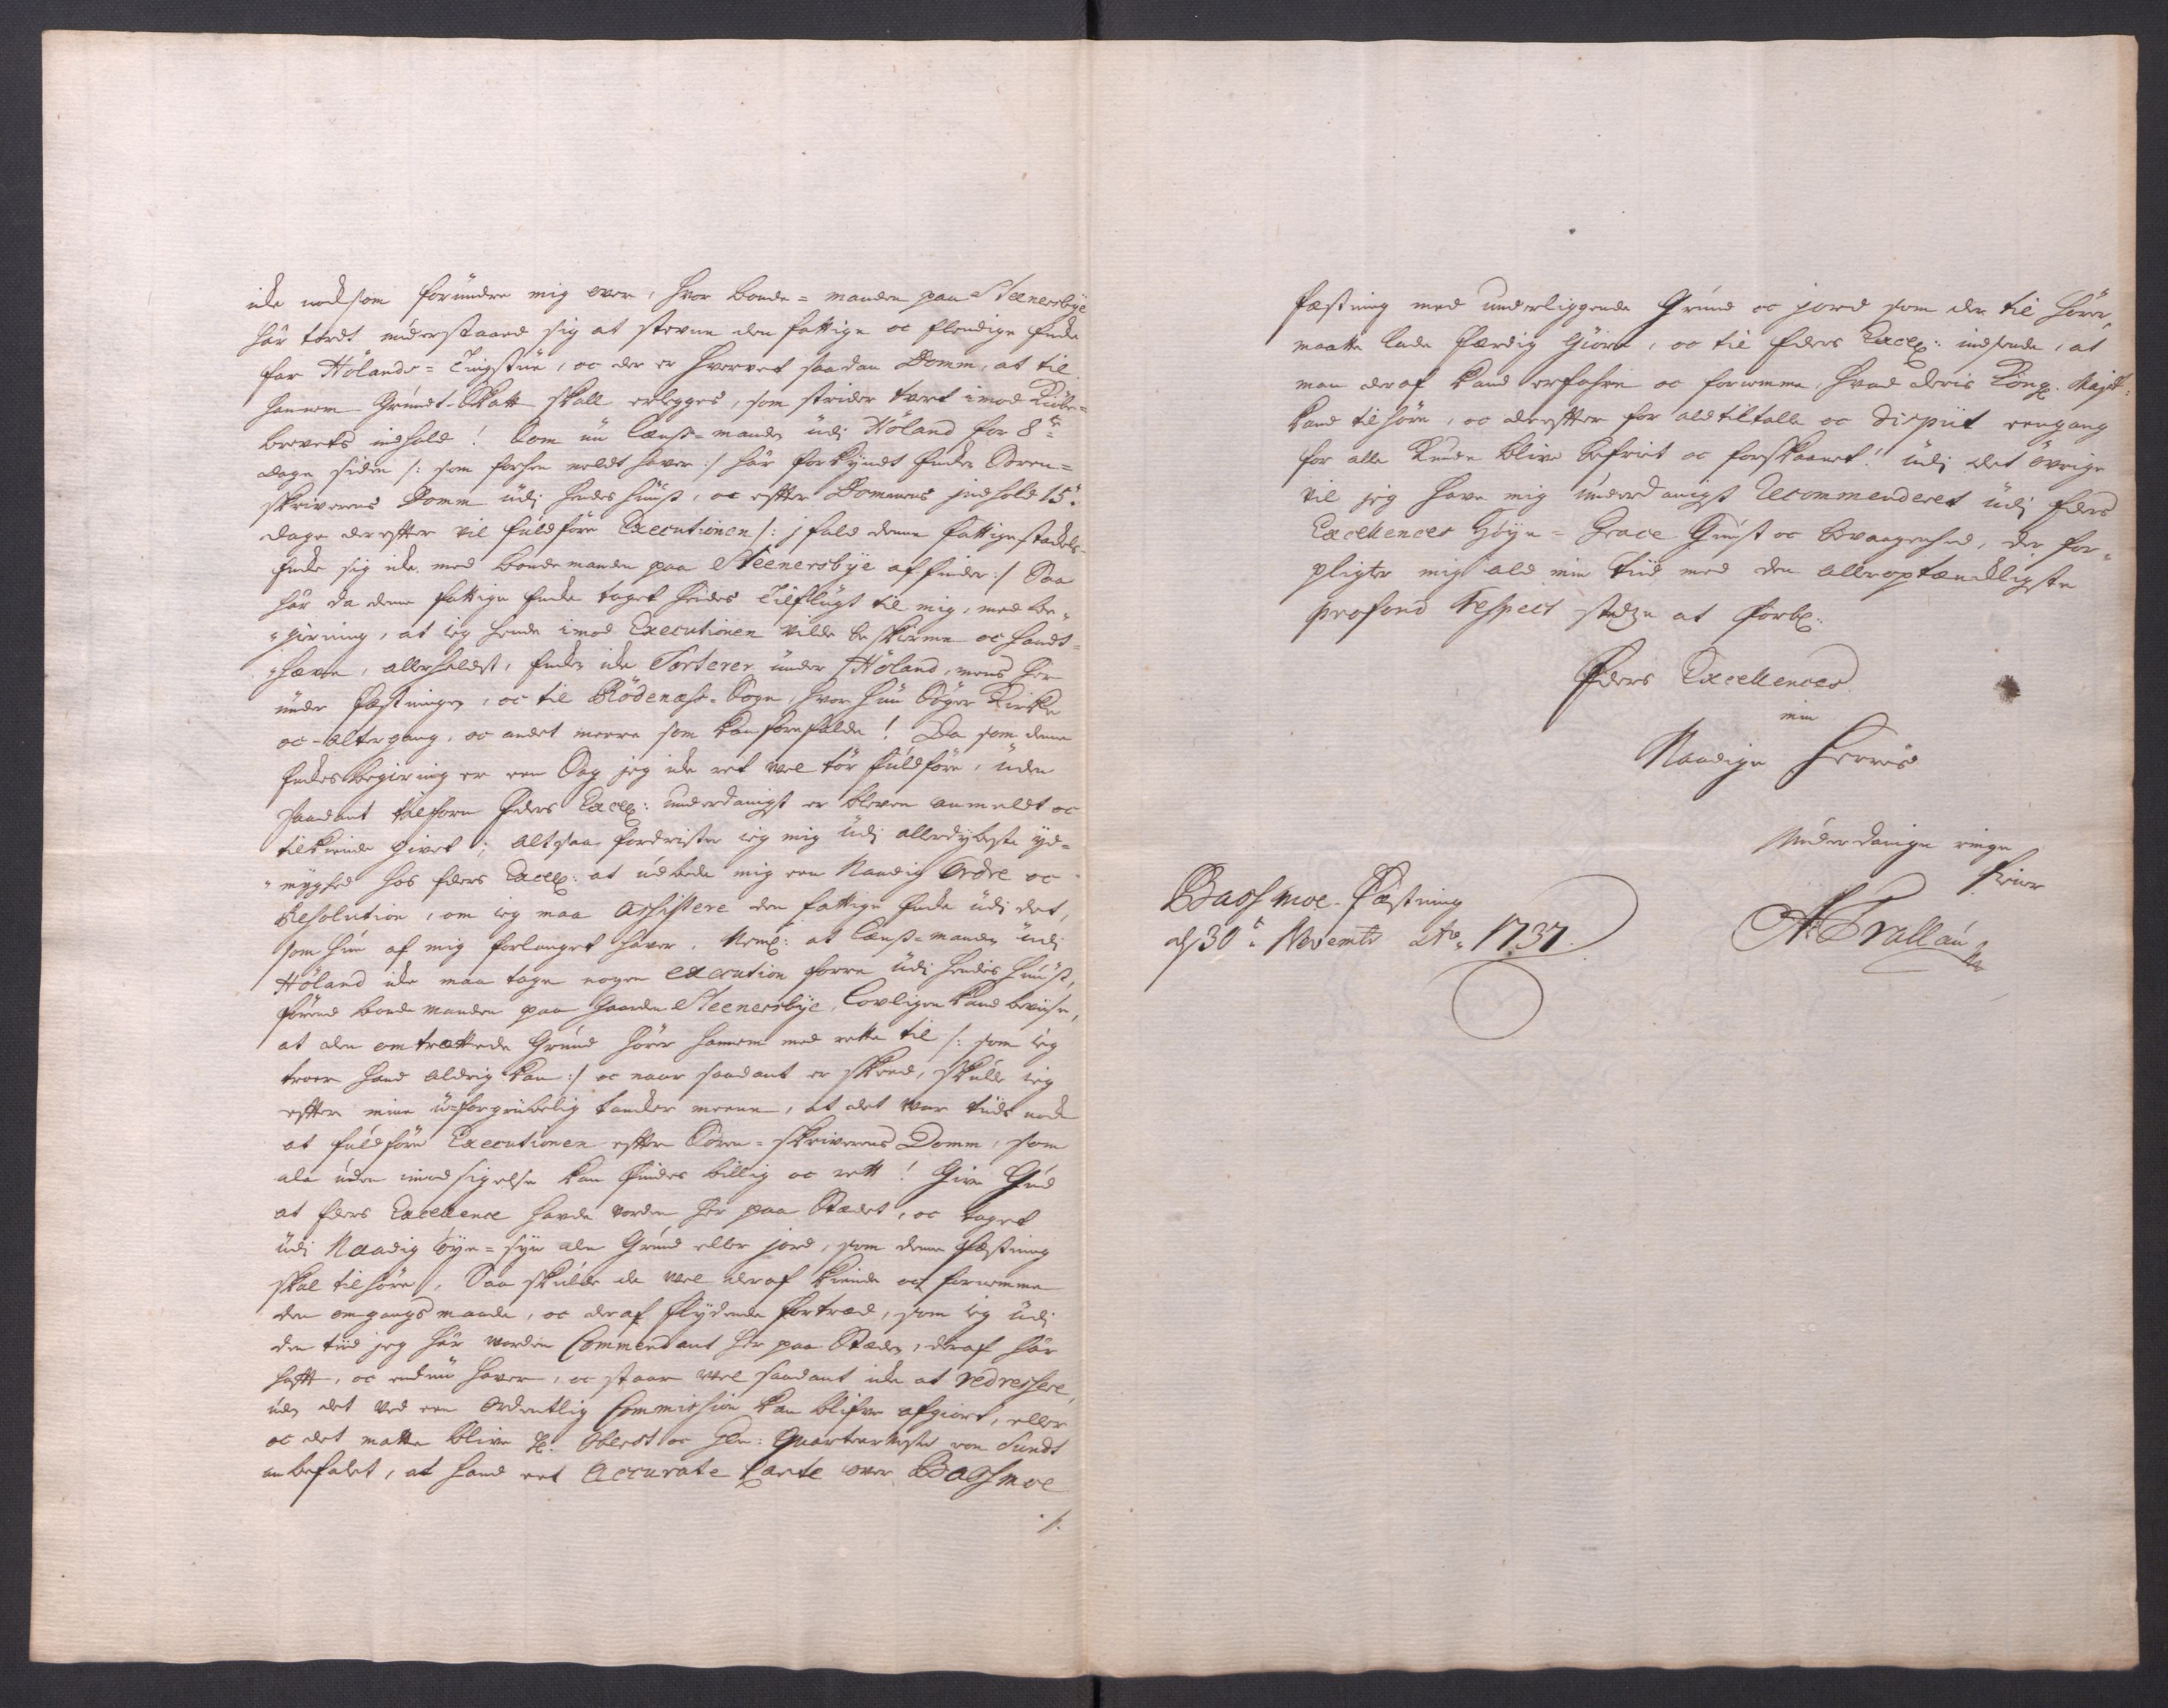 icke nocksom forundre mig over, hvor bonde-manden paa Steenersbÿe
har tordt understaaed sig at stevne den fattige oc Elendige Encke
for Hölands-Tingstue, oc der er hvervet saadan Domm, at til
hannem Grundt-Skatt skall erlegges, som strider tvert imod Kiöbe-
brevets indhold! Som nu Lenss-manden udj Höland for 8te
dage siden /: som forhen meldt haver :/ har forkÿndt Encken Soren-
skriverens Domm udj hendes huuss, oc effter Dommens indhold 15.
dage dereffter vil fuldföre Executionen /: j fald denne fattige stackels
Encke sig icke med bondemanden paa Steenersbÿe affinder :/ Saa
har da denne fattige Encke taget hendes Tilflugt til mig, med be-
giering, at ieg hende imod Executionen vilde beskierme oc handt-
hæve, allerhelst, Encken icke Sorterer under Höland, mens her
under Fæstningen, oc til Rödenæss-Sogn, hvor hun Söger Kircke
oc-Altergang, oc andet meere som kan forefalde! Da som denne
Enckes begiering er een Sag jeg icke ret vel tör fuldföre, uden
saadant tilforn Eders Excell: underdanigst er bleven anmeldt oc
tilkiende givet; altsaa fordrister ieg mig udj allerdÿbeste ÿd-
mÿghed hos Eders Excell: at udbede mig een Naadig Ordre oc
Resolution, om ieg maa assistere den fattige Encke udj det,
som hun af mig forlanget haver, Neml: at Lenss-manden udj
Höland icke maa tage nogen execution forre udj hendes huuss,
förend bondemanden paa Gaarden Steenersbÿe, Lovligen kand beviise,
at den omtrættede Grund hörer hannem med rette til /: som ieg
troer hand aldrig kan :/ oc naar saadant er skeed, skulle ieg
effter mine u-forgribelig tancker meene, at det var tiids nock
at fuldföre Executionen effter Soren-skriverens Domm, som
da uden imodsigelse kan findes billig oc rett! Give Gud
at Eders Excellence havde vorden her paa Stædet, oc taget
udj Naadig öÿe-sÿn den Grund eller jord, som denne Fæstning
skal tilhöre, Saa skulde de vel deraf kiende oc fornemme
den omgangsmaade, oc deraf flÿdende fortræd, som ieg udj
den tiid jeg har vorden Commendant her paa Stæden, deraf har
hafft, oc endnu haver, oc staar vel saadant icke at redressere,
uden det ved een Ordentlig Commission kan blifve afgiort, eller
oc det matte blive Hr. Oberst oc Gen: Quarteermester von Sundt
anbefalet, at hand eet Accurate Carte over Bassmoe
./.
Fæstning med underliggende Grund oc jord som der til hörer,
maatte lade færdig Giöre, oc til Eders Excell: indsende, at
man deraf kand erfahre oc fornemme, hvad deris Kongl. Majst:
kand tilhöre, oc dereffter for ald tiltalle oc Dispüt eengang
for alle Kunde blive befriet oc forskaanet! udj det övrige
vil jeg have mig underdanigst Recommenderet udj Eders
Excellences Höÿe-Grace Gunst oc bevaagenhed, der for-
pligter mig ald min tiid med den alleroptænckligste
profond respect stedze at forbl:
Eders Excellences
min
Naadige Herres
Underdanige ringe
tiener
Bassmoe-Fæstning
d 30te Novembr Ao 1737.
A: Trallau